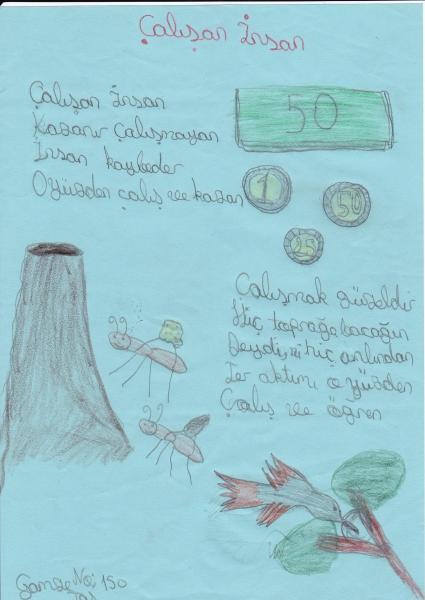 Çalışan İnsan
Çalışan İnsan
Kazanır Çalışmayan
İnsan kaybeder
O yüzden çalış ve kazan
50
1
50
25
Çalışmak güzeldir
Hiç toprağa bacağın
Deydi mi hiç anlından
Ter aktımı o yüzden
Çalış ve öğren
Gamze No: 150